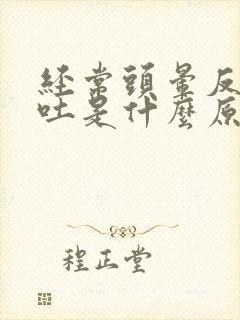 經常頭暈反
吐是什麼原
程正堂